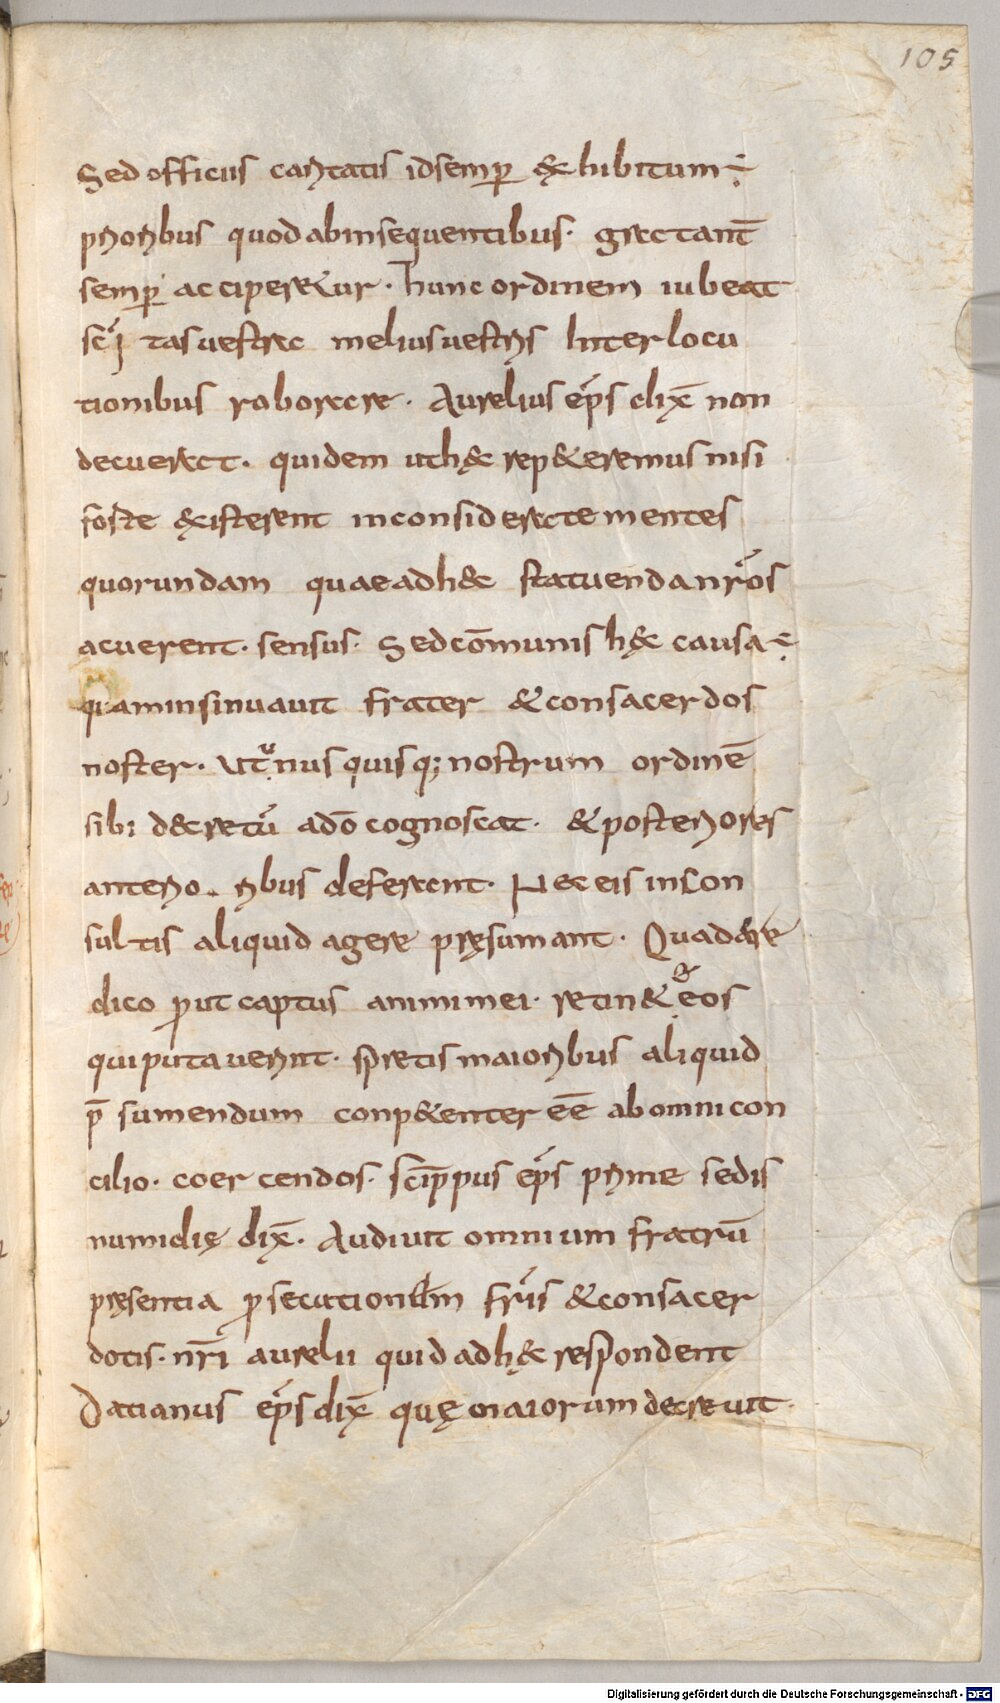 105
Sed officiis caritatis id semper & hibitum ÷
prioribus quod ab insequentibus· gratant̄
semp̱ acciper&ur· hunc ordinem iubeat
sc̄i tas vestrae melius vestris Interlocu
tionibus roborare· Aurelius ep̄s dix̄ non
decuerat· quidem ut h&c rep&eremus nisi
forte &isterent inconsideratementes
quorundam quae ad h&c statuenda nr̄os
acuerent· sensus· Sed cōmunis h&c causa ÷
quam insinuauit frater & consacerdos
noster· ut unus quisq; nostrum ordinē
sibi decretū a dō cognoscat· & posteriores
anterio ribus deferant· Nec eis incon
sultis aliquid agere pręsumant· Qua dare
dico prout captus animi mei· retin& & eos
qui putauerint· spretis maioribus aliquid
p̄ sumendum conp&enter eē ab omni con
cilio· coercendos· scippus ep̄s prime sedis
numidię dix̄· Audiuit omnium fratrū
pręsentia prosecutionem fr̄is & consacer
dotis· nr̄i aurelii quid ad h&c respondent
Datianus ep̄s dix̄ quę maiorum decreuit·
Digitalisierung gefördert durch die Deutsche Forschungsgemeinschaft - DFG